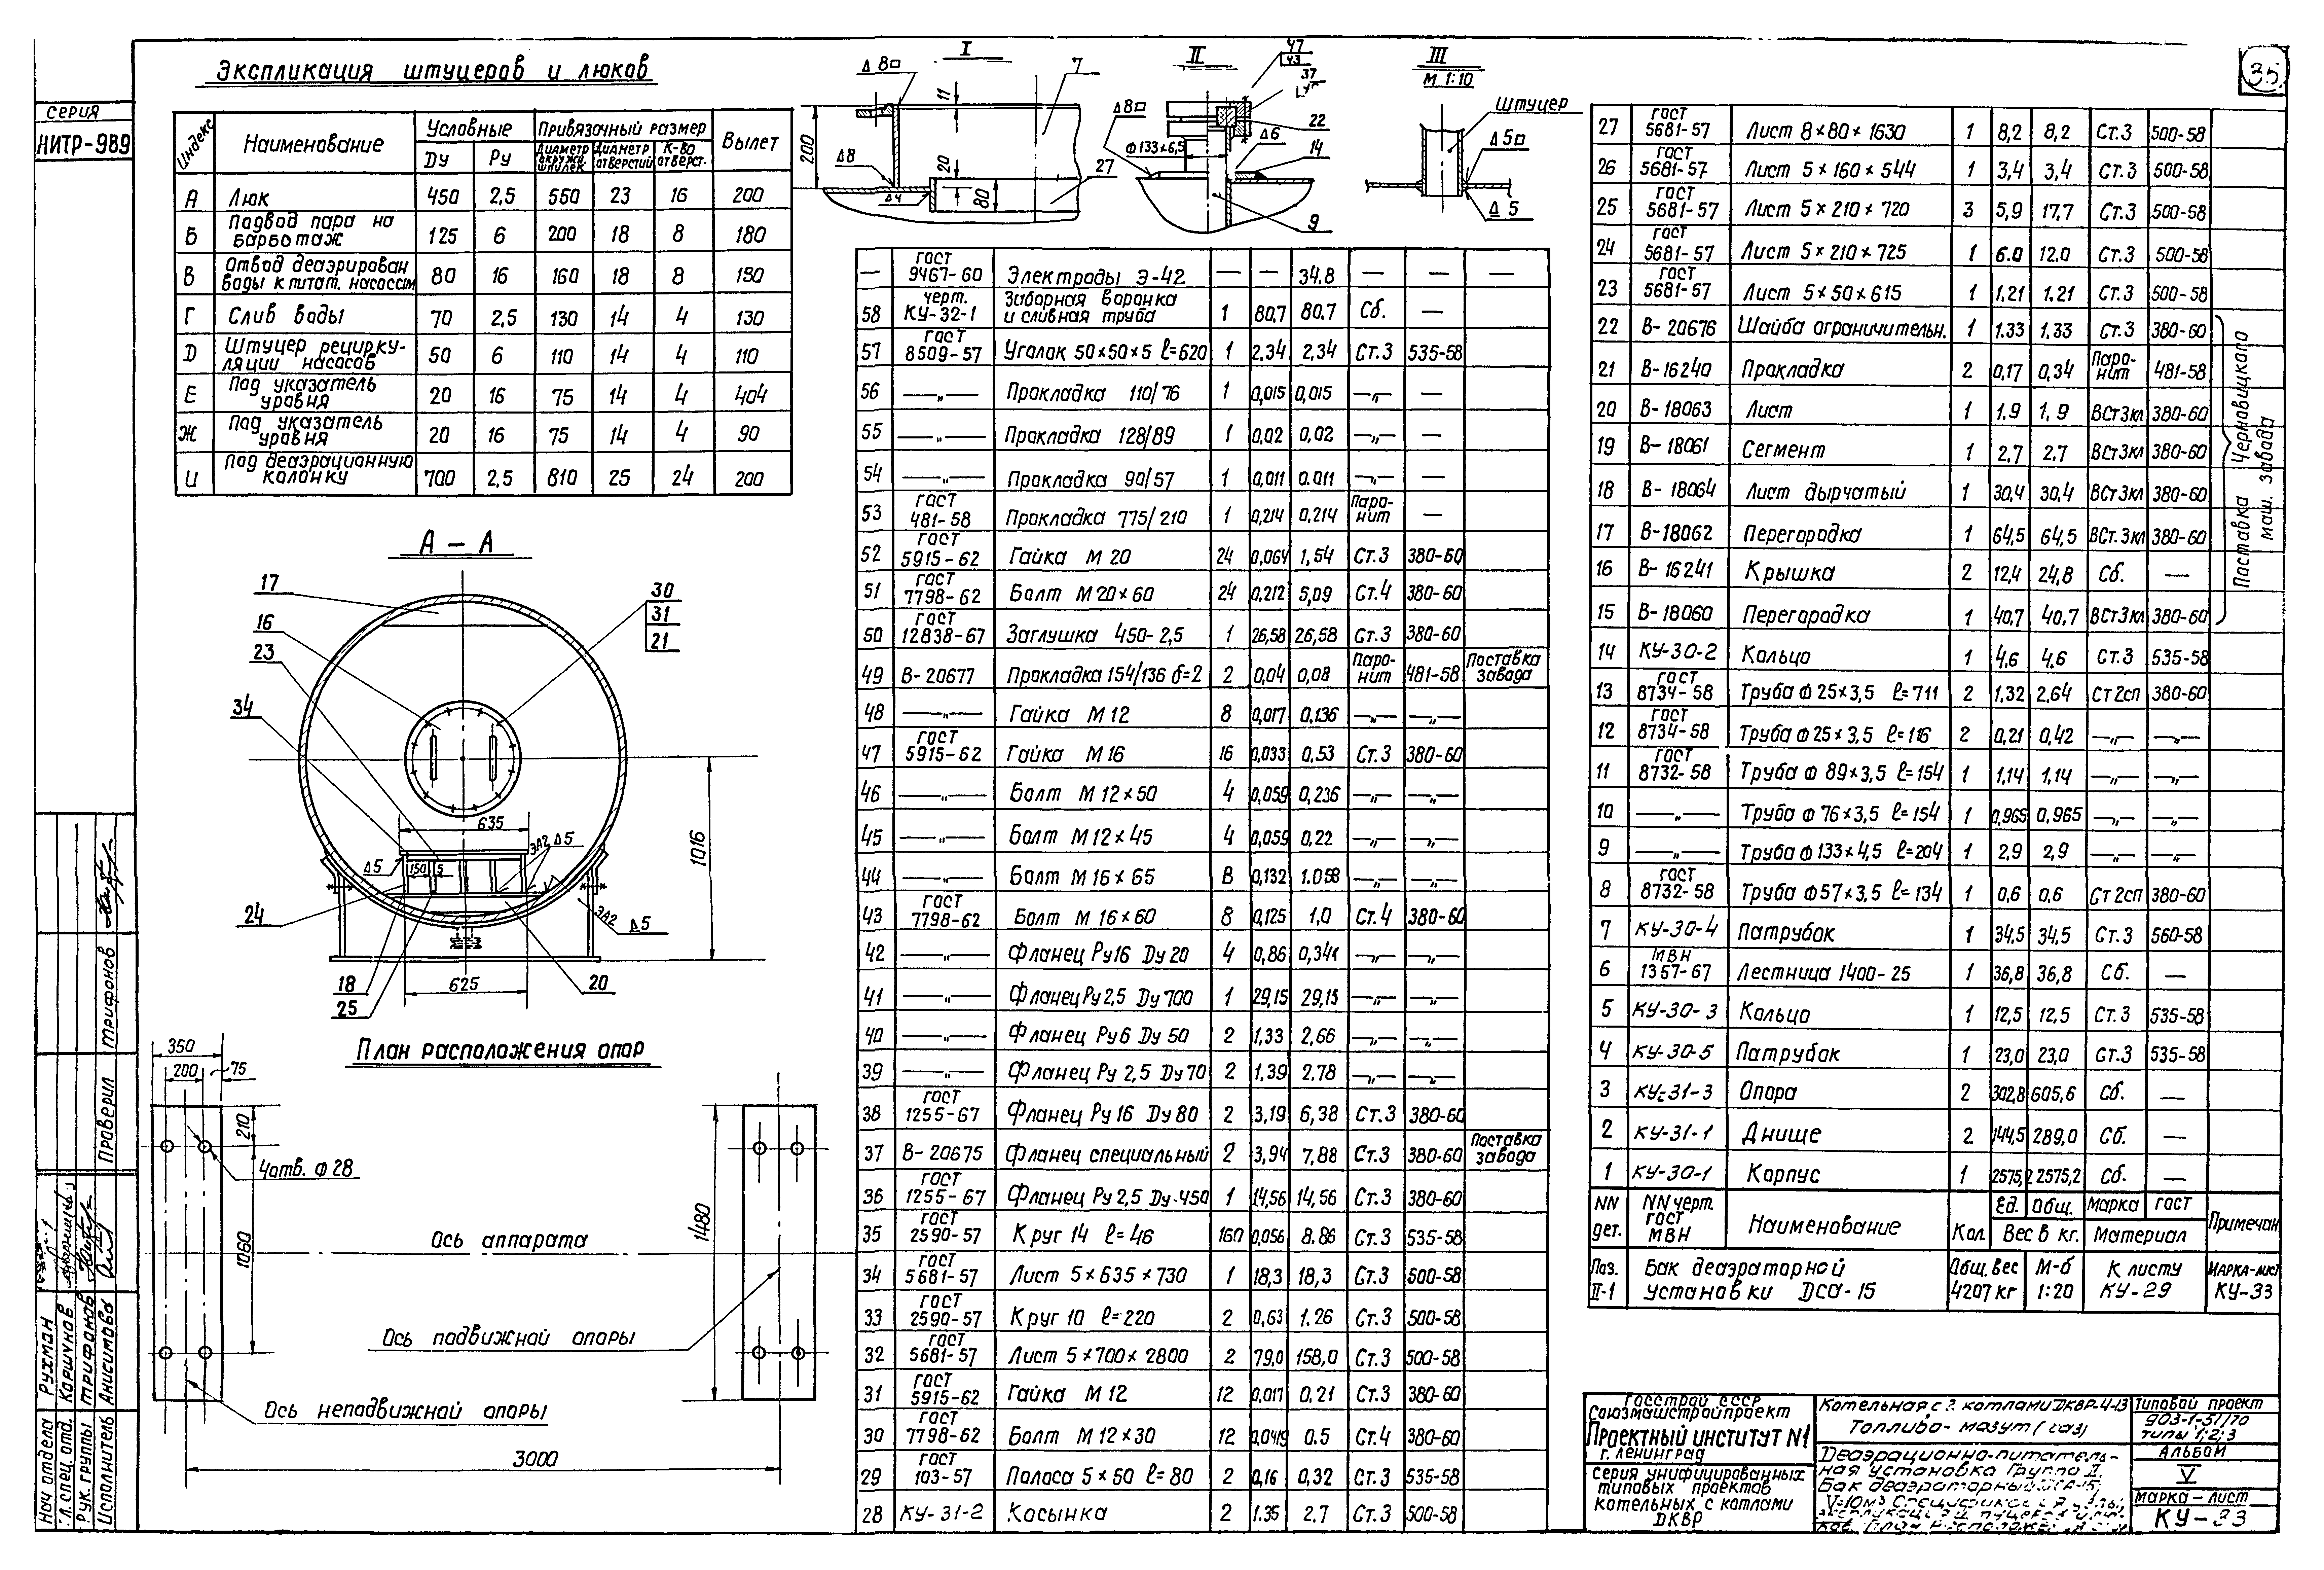 35
серия
НИТР-989
Экспликация штуцеров и люков
Индекс Наименование Условные Привязочный размер Вылет
Dу Ру Диаметр окружн. шпилек Диаметр отверстий К-во отверст.
А Люк 450 2,5 550 23 16 200
Б Подвод пара на барботаж 125 6 200 18 8 180
В Отвод деаэрирован воды к питат. насосам 80 16 160 18 8 150
Г Слив воды 70 2,5 130 14 4 130
Д Штуцер рецирку-ляции насосов 50 6 110 14 4 110
Е Под указатель уровня 20 16 75 14 4 404
Ж Под указатель уровня 20 16 75 14 4 90
И Под деаэрационную колонку 700 2,5 810 25 24 200
I
Δ 8
11
7
200
Δ8
20
Δ4
80
27
II
47
43
37
Δ8
22
Δ6
Ф133×6,5
14
9
III
М 1:10
Штуцер
Δ5
Δ 5
А – А
17
16
23
34
30
31
21
635
Δ5
150
5
ЭА2 Δ5
1016
24
ЭА2 Δ5
18
25
625
20
План расположения опор
350
200
75
210
4отв. Ф28
1060
1480
Ось аппарата
Ось подвижной опоры
Ось неподвижной опоры
3000
— ГОСТ 9467-60 Электроды Э-42 — — 34,8 — — —
58 черт. КУ-32-1 Заборная воронка и сливная труба 1 80,7 80.7 Сб. —
57 ГОСТ 8509-57 Уголок 50×50×5 ℓ=620 1 2,34 2,34 Ст.3 535-58
56 —„— Прокладка 110/76 1 0,015 0,015 —„— —
55 —„— Прокладка 128/89 1 0,02 0,02 —„— —
54 —„— Прокладка 90/57 1 0,011 0.011 —„— —
53 ГОСТ 481-58 Прокладка 775/210 1 0,214 0,214 Паро-нит —
52 ГОСТ 5915-62 Гайка М 20 24 0,064 1,54 Ст.3 380-60
51 ГОСТ 7798-62 Болт М20×60 24 0,212 5,09 Ст.4 380-60
50 ГОСТ 12838-67 Заглушка 450-2,5 1 26,58 26,58 Ст.3 380-60
49 В-20677 Прокладка 154/136 б=2 2 0,04 0,08 Паро-нит 481-58 Поставка завода
48 —„— Гайка М 12 8 0,017 0,136 —„— —„—
47 ГОСТ 5915-62 Гайка М16 16 0,033 0,53 Ст.3 380-60
46 —„— Болт М12×50 4 0,059 0,236 —„— —„—
45 —„— Болт М12×45 4 0,059 0,22 —„— —„—
44 —„— Болт М16×65 8 0,132 1.058 —„— —„—
43 ГОСТ 7798-62 Болт М16×60 8 0,125 1,0 Ст.4 380-60
42 —„— Фланец Ру16 Dу20 4 0,86 0,341 —„— —„—
41 —„— Фланец Ру2,5 Dу700 1 29,15 29,15 —„— —„—
40 —„— Фланец Ру6 Dу 50 2 1,33 2,66 —„— —„—
39 —„— Фланец Ру 2,5 Dу70 2 1,39 2,78 —„— —„—
38 ГОСТ 1255-67 Фланец Ру16 Dу80 2 3,19 6,38 Ст.3 380-60
37 В-20675 Фланец специальный 2 3,94 7,88 Ст.3 380-60 Поставка завода
36 ГОСТ 1255-67 Фланец Ру2,5 Dу-450 1 14,56 14,56 Ст.3 380-60
35 ГОСТ 2590-57 Круг 14 ℓ=46 160 0,056 8.86 Ст.3 535-58
34 ГОСТ 5681-57 Лист 5×635×730 1 18,3 18,3 Ст.3 500-58
33 ГОСТ 2590-57 Круг 10 ℓ=220 2 0,63 1.26 Ст.3 500-58
32 ГОСТ 5681-57 Лист 5×700×2800 2 79,0 158,0 Ст.3 500-58
31 ГОСТ 5915-62 Гайка М12 12 0,017 0,21 Ст.3 380-60
30 ГОСТ 7798-62 Болт М12×30 12 0,0419 0.5 Ст.4 380-60
29 ГОСТ 103-57 Полоса 5×50 ℓ=80 2 0,16 0,32 Ст.3 535-58
28 КУ-31-2 Косынка 2 1.35 2.7 Ст.3 500-58
27 ГОСТ 5681-57 Лист 8×80×1630 1 8,2 8,2 Ст.3 500-58
26 ГОСТ 5681-57 Лист 5×160×544 1 3,4 3,4 Ст.3 500-58
25 ГОСТ 5681-57 Лист 5×210×720 3 5,9 17,7 Ст.3 500-58
24 ГОСТ 5681-57 Лист 5×210×725 1 6.0 12,0 Ст.3 500-58
23 ГОСТ 5681-57 Лист 5×50×615 1 1,21 1.21 Ст.3 500-58
22 В-20676 Шайба ограничительн. 1 1.33 1,33 Ст.3 380-60
21 В-16240 Прокладка 2 0,17 0,34 Паро-нит 481-58
20 В-18063 Лист 1 1,9 1,9 ВСт3кл 380-60
19 В-18061 Сегмент 1 2,7 2,7 ВСт3кл 380-60
18 В-18064 Лист дырчатый 1 30,4 30,4 ВСт3кл 380-60
17 В-18062 Перегородка 1 64,5 64,5 ВСт.3кл 380-60
16 В-16241 Крышка 2 12,4 24,8 Сб. —
15 В-18060 Перегородка 1 40,7 40,7 ВСт3кл 380-60
Поставка Черновицкого маш. завода
14 КУ-30-2 Кольцо 1 4,6 4,6 Ст.3 535-58
13 ГОСТ 8734-58 Труба Ф25×3,5 ℓ=711 2 1,32 2,64 Ст2сп 380-60
12 ГОСТ 8734-58 Труба Ф25×3,5 ℓ=116 2 0,21 0,42 —„— —„—
11 ГОСТ 8732-58 Труба Ф 89×3,5 ℓ=154 1 1,14 1,14 —„— —„—
10 —„— Труба Ф 76×3,5 ℓ=154 1 0,965 0,965 —„— —„—
9 —„— Труба Ф133×4,5 ℓ=204 1 2,9 2,9 —„— —„—
8 ГОСТ 8732-58 Труба Ф57×3,5 ℓ=134 1 0,6 0.6 Ст2сп 380-60
7 КУ-30-4 Патрубок 1 34,5 34,5 Ст.3 560-58
6 МВН 1357-67 Лестница 1400-25 1 36,8 36,8 Сб. —
5 КУ-30-3 Кольцо 1 12,5 12,5 Ст.3 535-58
4 КУ-30-5 Патрубок 1 23,0 23,0 Ст.3 535-58
3 КУ-31-3 Опора 2 302,8 605,6 Сб. —
2 КУ-31-1 Днище 2 144,5 289,0 Сб. —
1 КУ-30-1 Корпус 1 2575,2 2575,2 Сб. —
NN дет. NN черт. ГОСТ МВН Наименование Кол. Ед. Общ. Вес в кг. Марка ГОСТ Материал Примечан
Поз. II-1 Бак деаэраторной установки DCа-15 Общ. вес 4207 кг М-б 1:20 К листу КУ-29 МАРКА-лист КУ-33
Госстрой СССР
Союзмашстройпроект
Проектный институт N1
г. Ленинград
серия унифицированных
типовых проектов
котельных с котлами
ДКВР
Котельная с 2 котлами ДКВР-4-13
Топливо-мазут (газ)
Деаэрационно-питатель-
ная установка Группа II.
Бак деаэраторный
V=10м3
Типовой проект
903-1-51/70
типы 1;2;3
Альбом
V
марка-лист
КУ-33
Проверил Трифонов
Нач отдела Рухман
Гл. спец. отд. Коршунов
Рук. группы Трифонов
Исполнитель Анисимова